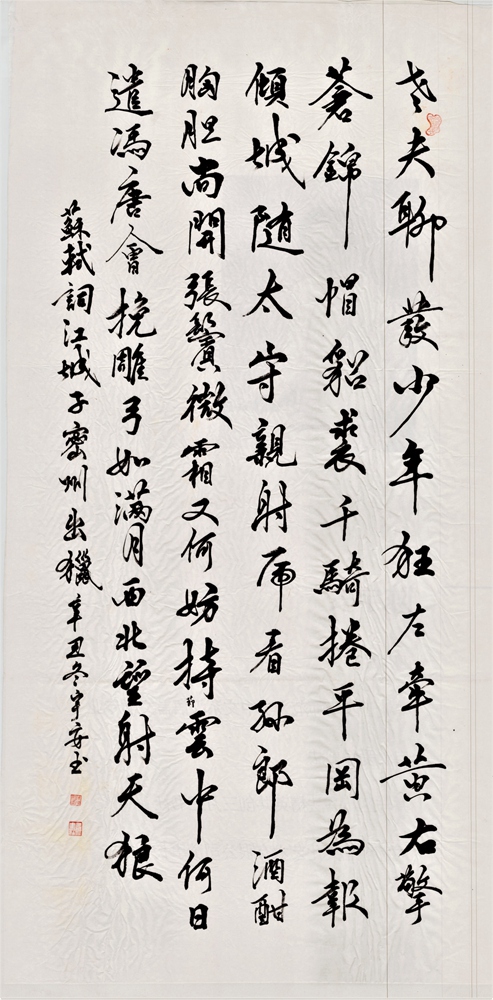 老夫聊發少年狂左牽黃右擎
蒼錦帽貂裘千騎捲平岡為報
傾城随太守親射虎看孫郎酒酣
胸胆尚開張鬢微霜又何妨持節雲中何日
遣馮唐會挽雕弓如滿月西北望射天狼
蘇軾詞江城子密州出獵辛丑冬宇安书